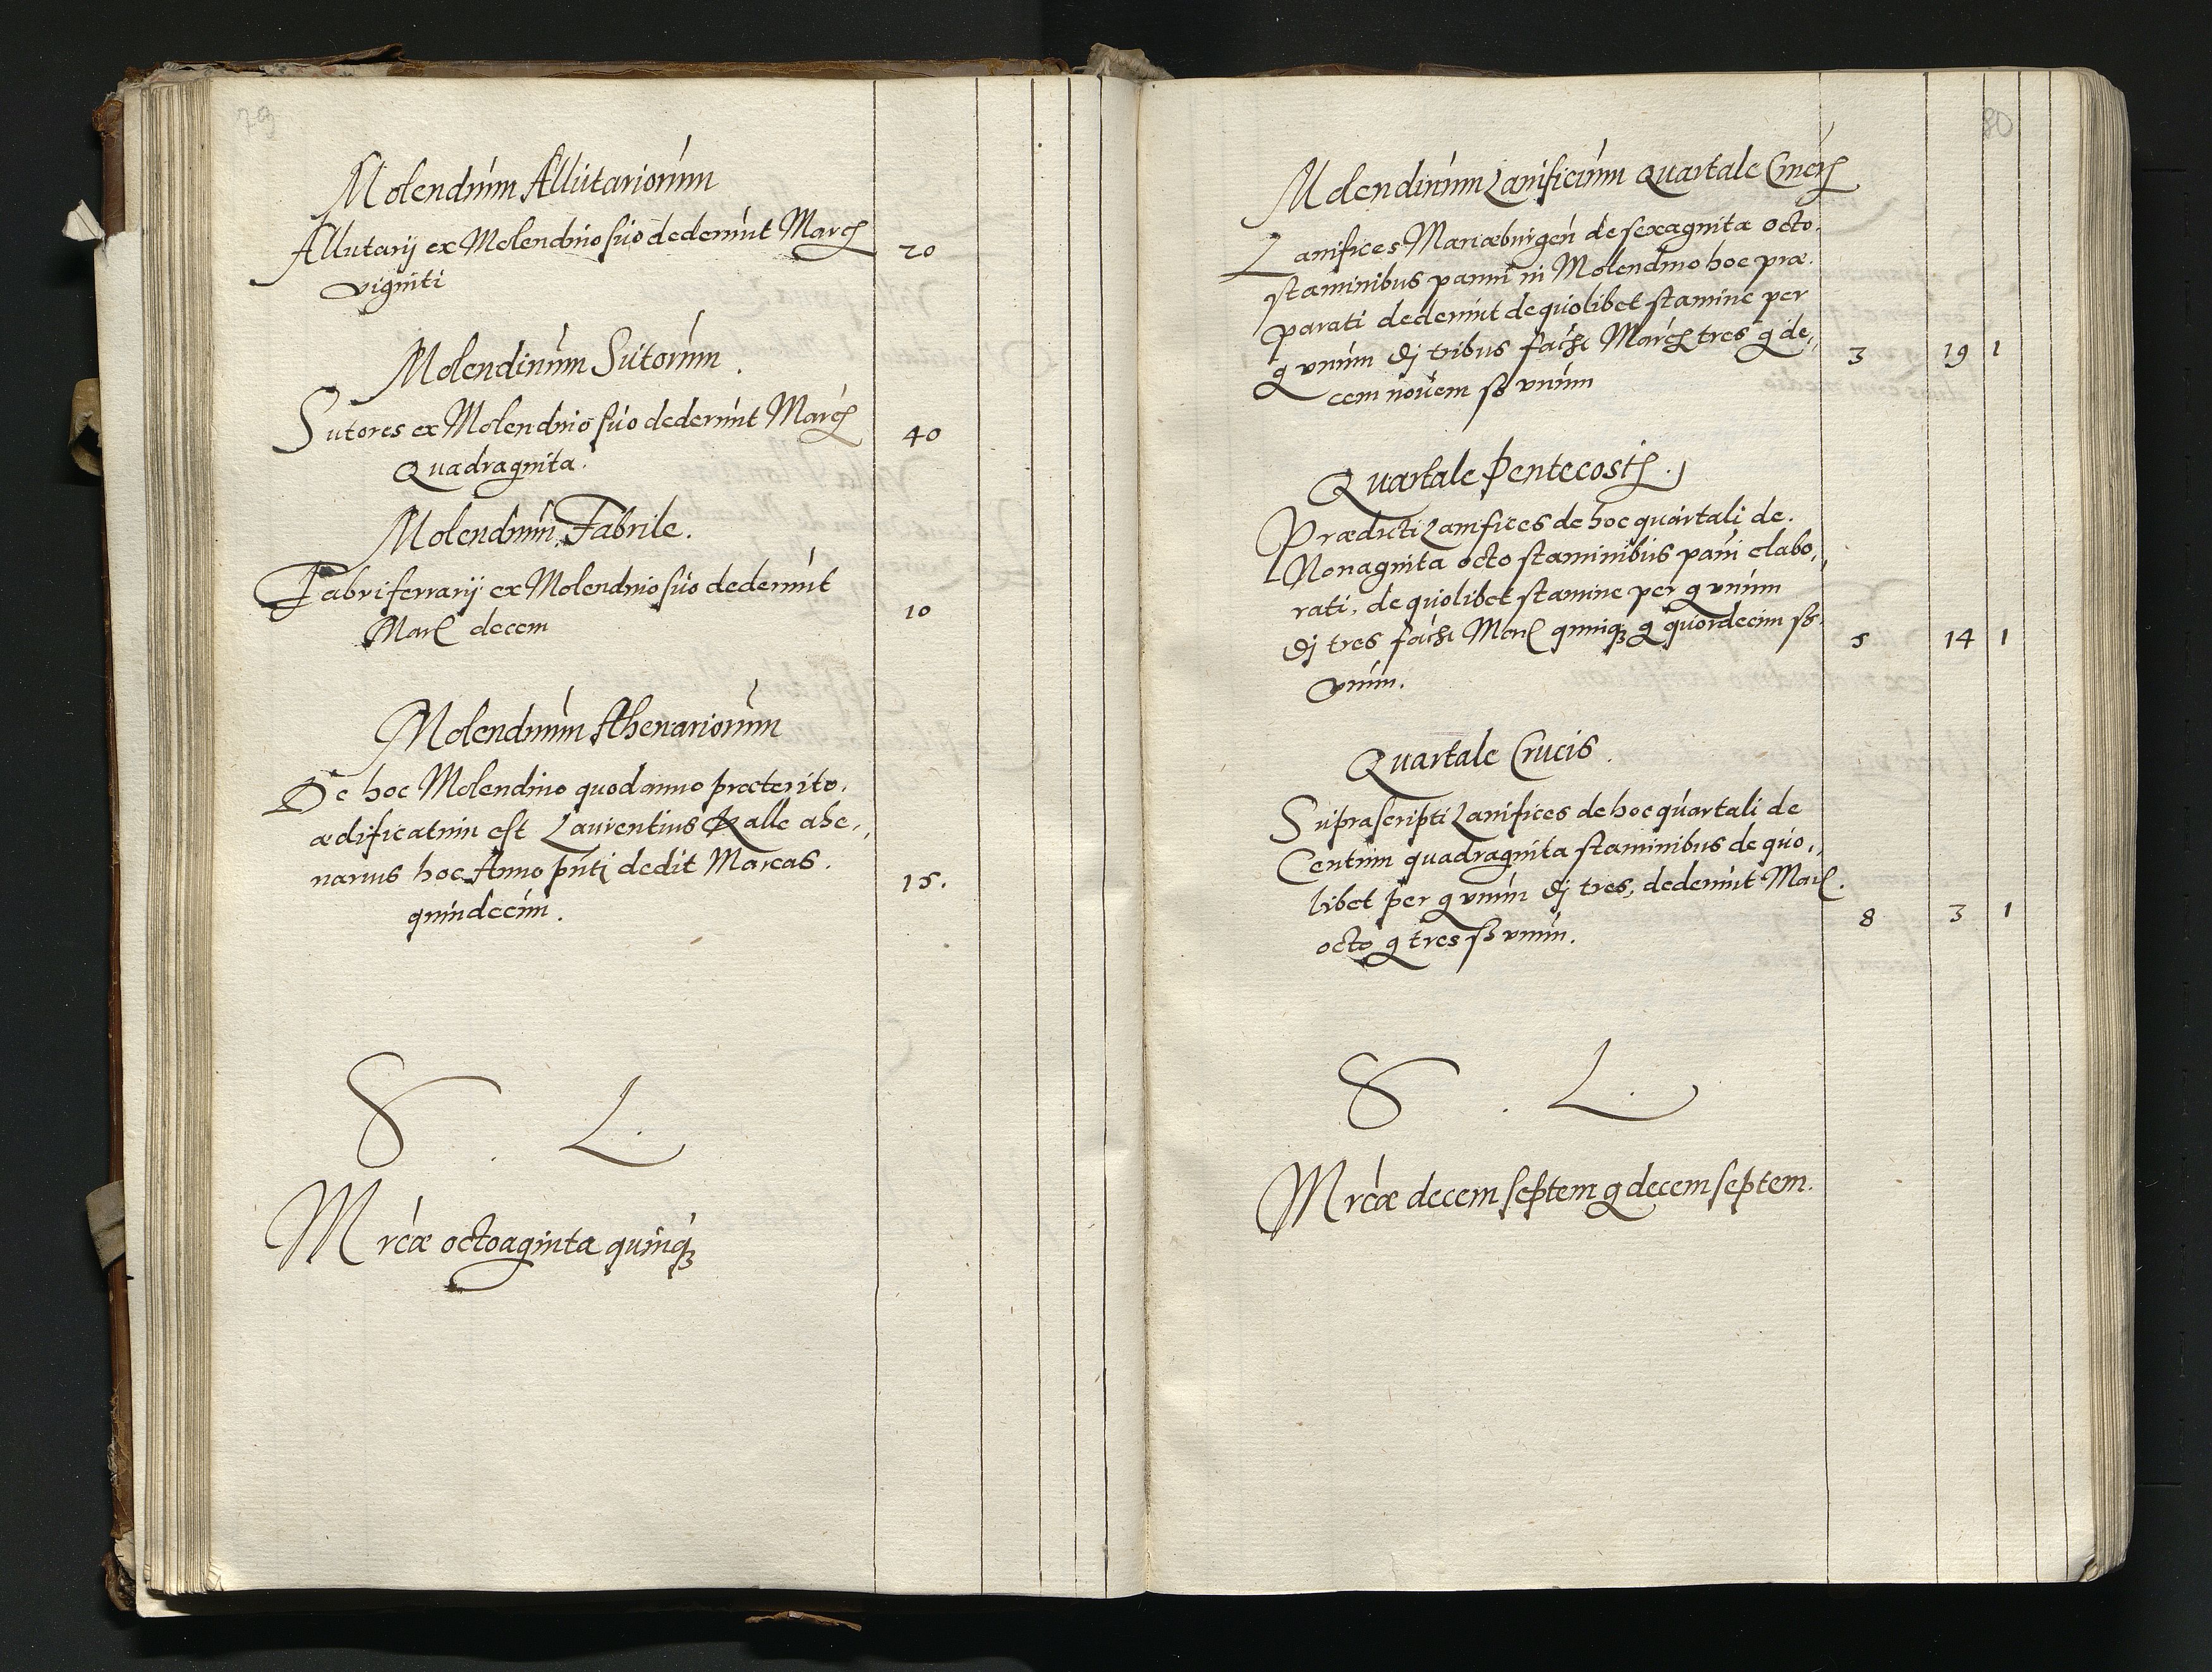 79
Molendinum Allutariorum
Allutarij ex Molendino suo dederunt Marcs
viginti
20
Molendinum Sutorum.
Sutores ex Molendino suo dederunt Marcs
Quadraginta.
40
Molendinum Fabrile.
Fabri ferrarij ex Molendino suo dederunt
Marc decem
10
Molendinum Ahenariorum
De hoc Molendino quod anno præterito.
ædificatum est Laurentius Kalle ahe,,
narius hoc Anno pnti dedit Marcas.
quindecim.
15.
S . L.
Mrcæ octoaginta quinq
80
Molendinum Lanificum Quartale Cinerum
Lanifices Mariæburgen de sexaginta octo.
staminibus panni in Molendino hoc præ.
parati dederunt de quolibet stamine per
g unum Dj tribus facit Marcs tres g de,,
cem novem ss unum
3 19 1
Quartale Pentecosts.
Prædicti Lanifices de hoc quartali de.
Nonaginta octo staminibus pani elabo,,
rati, de quolibet stamine per g unum
Dj tres facit Marc quinq g quordecim ss.
unum.
5 14 1
Quartale Crucis.
Suprascripti Lanifices de hoc quartali de
Centum quadraginta staminibus de quo,,
libet per g unum Dj tres, dederunt Marc.
octo g tres ss unum.
8 3 1
S . L.
Mrcæ decem septem g decem septem.